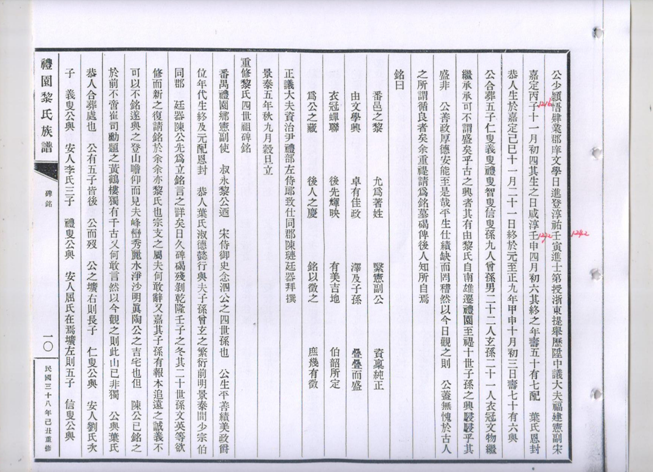 公少穎悟肄業郡庠文學日進登淳祐壬寅進士第授浙東提舉歷陞中議大夫福建憲副宋
嘉定丙子十一月初四其生之日咸淳壬申四月初六其終之年壽五十有七配 葉氏恩封
恭人生於嘉定己巳十一月二十一日終於元至正九年甲申十月初三日壽七十有六與
公合葬五子仁叟義叟禮叟智叟信叟孫九人曾孫男二十二人玄孫二十一人衣冠文物繼
繼承承可不謂盛矣乎古之興者其有由黎氏自南雄遷禮園至禔十世子孫之興駸駸乎其
盛非 公善政厚德安能至是哉平生仕績缺而罔稽然以今日觀之則 公蓋無愧於古人
之所謂循良者矣余重禔請爲銘墓碣俾後人知所自焉
銘曰
番邑之黎 允爲著姓 繄憲副公 資稟純正
由文學興 卓有佳政 澤及子孫 疊疊而盛
衣冠蟬聯 後先輝映 有美吉地 伯韶所定
爲公之藏 後人之慶 銘以徵之 庶幾有徵
正議大夫資治尹禮部左侍郎致仕同郡陳璉廷器拜撰
景泰五年秋九月穀日立
重修黎氏四世祖碑銘
番禺禮園鄉憲副使 叔水黎公迺 宋侍御史念泗公之四世孫也 公生平善績美政爵
位年代生終及元配恩封 恭人葉氏淑德懿行與夫子孫曾玄之繁衍前明景泰間少宗伯
同郡 廷器陳公先爲立銘言之詳矣日久碑碣殘剥乾隆壬子之冬其二十世孫文英等欲
修而新之復請銘於余余亦黎氏也宗支之屬夫何敢辭又嘉其子孫有報本追遠之誠義不
可以不銘遂與之登山瞻仰而見夫峰巒秀麗水淨沙明眞陶公之吉宅也但 陳公已銘之
於前不啻崔司勳題之黃鶴樓獨有千古又何敢言然以今觀之則此山已非獨 公與葉氏
恭人合葬處也 公有五子皆後 公而歿 公之墳右則長子 仁叟公與 安人劉氏次
子 義叟公與 安人李氏三子 禮叟公與 安人屈氏在焉墳左則五子 信叟公與
禮園黎氏族譜
碑銘
一〇
民國三十八年己丑重修
1216
1272
1242